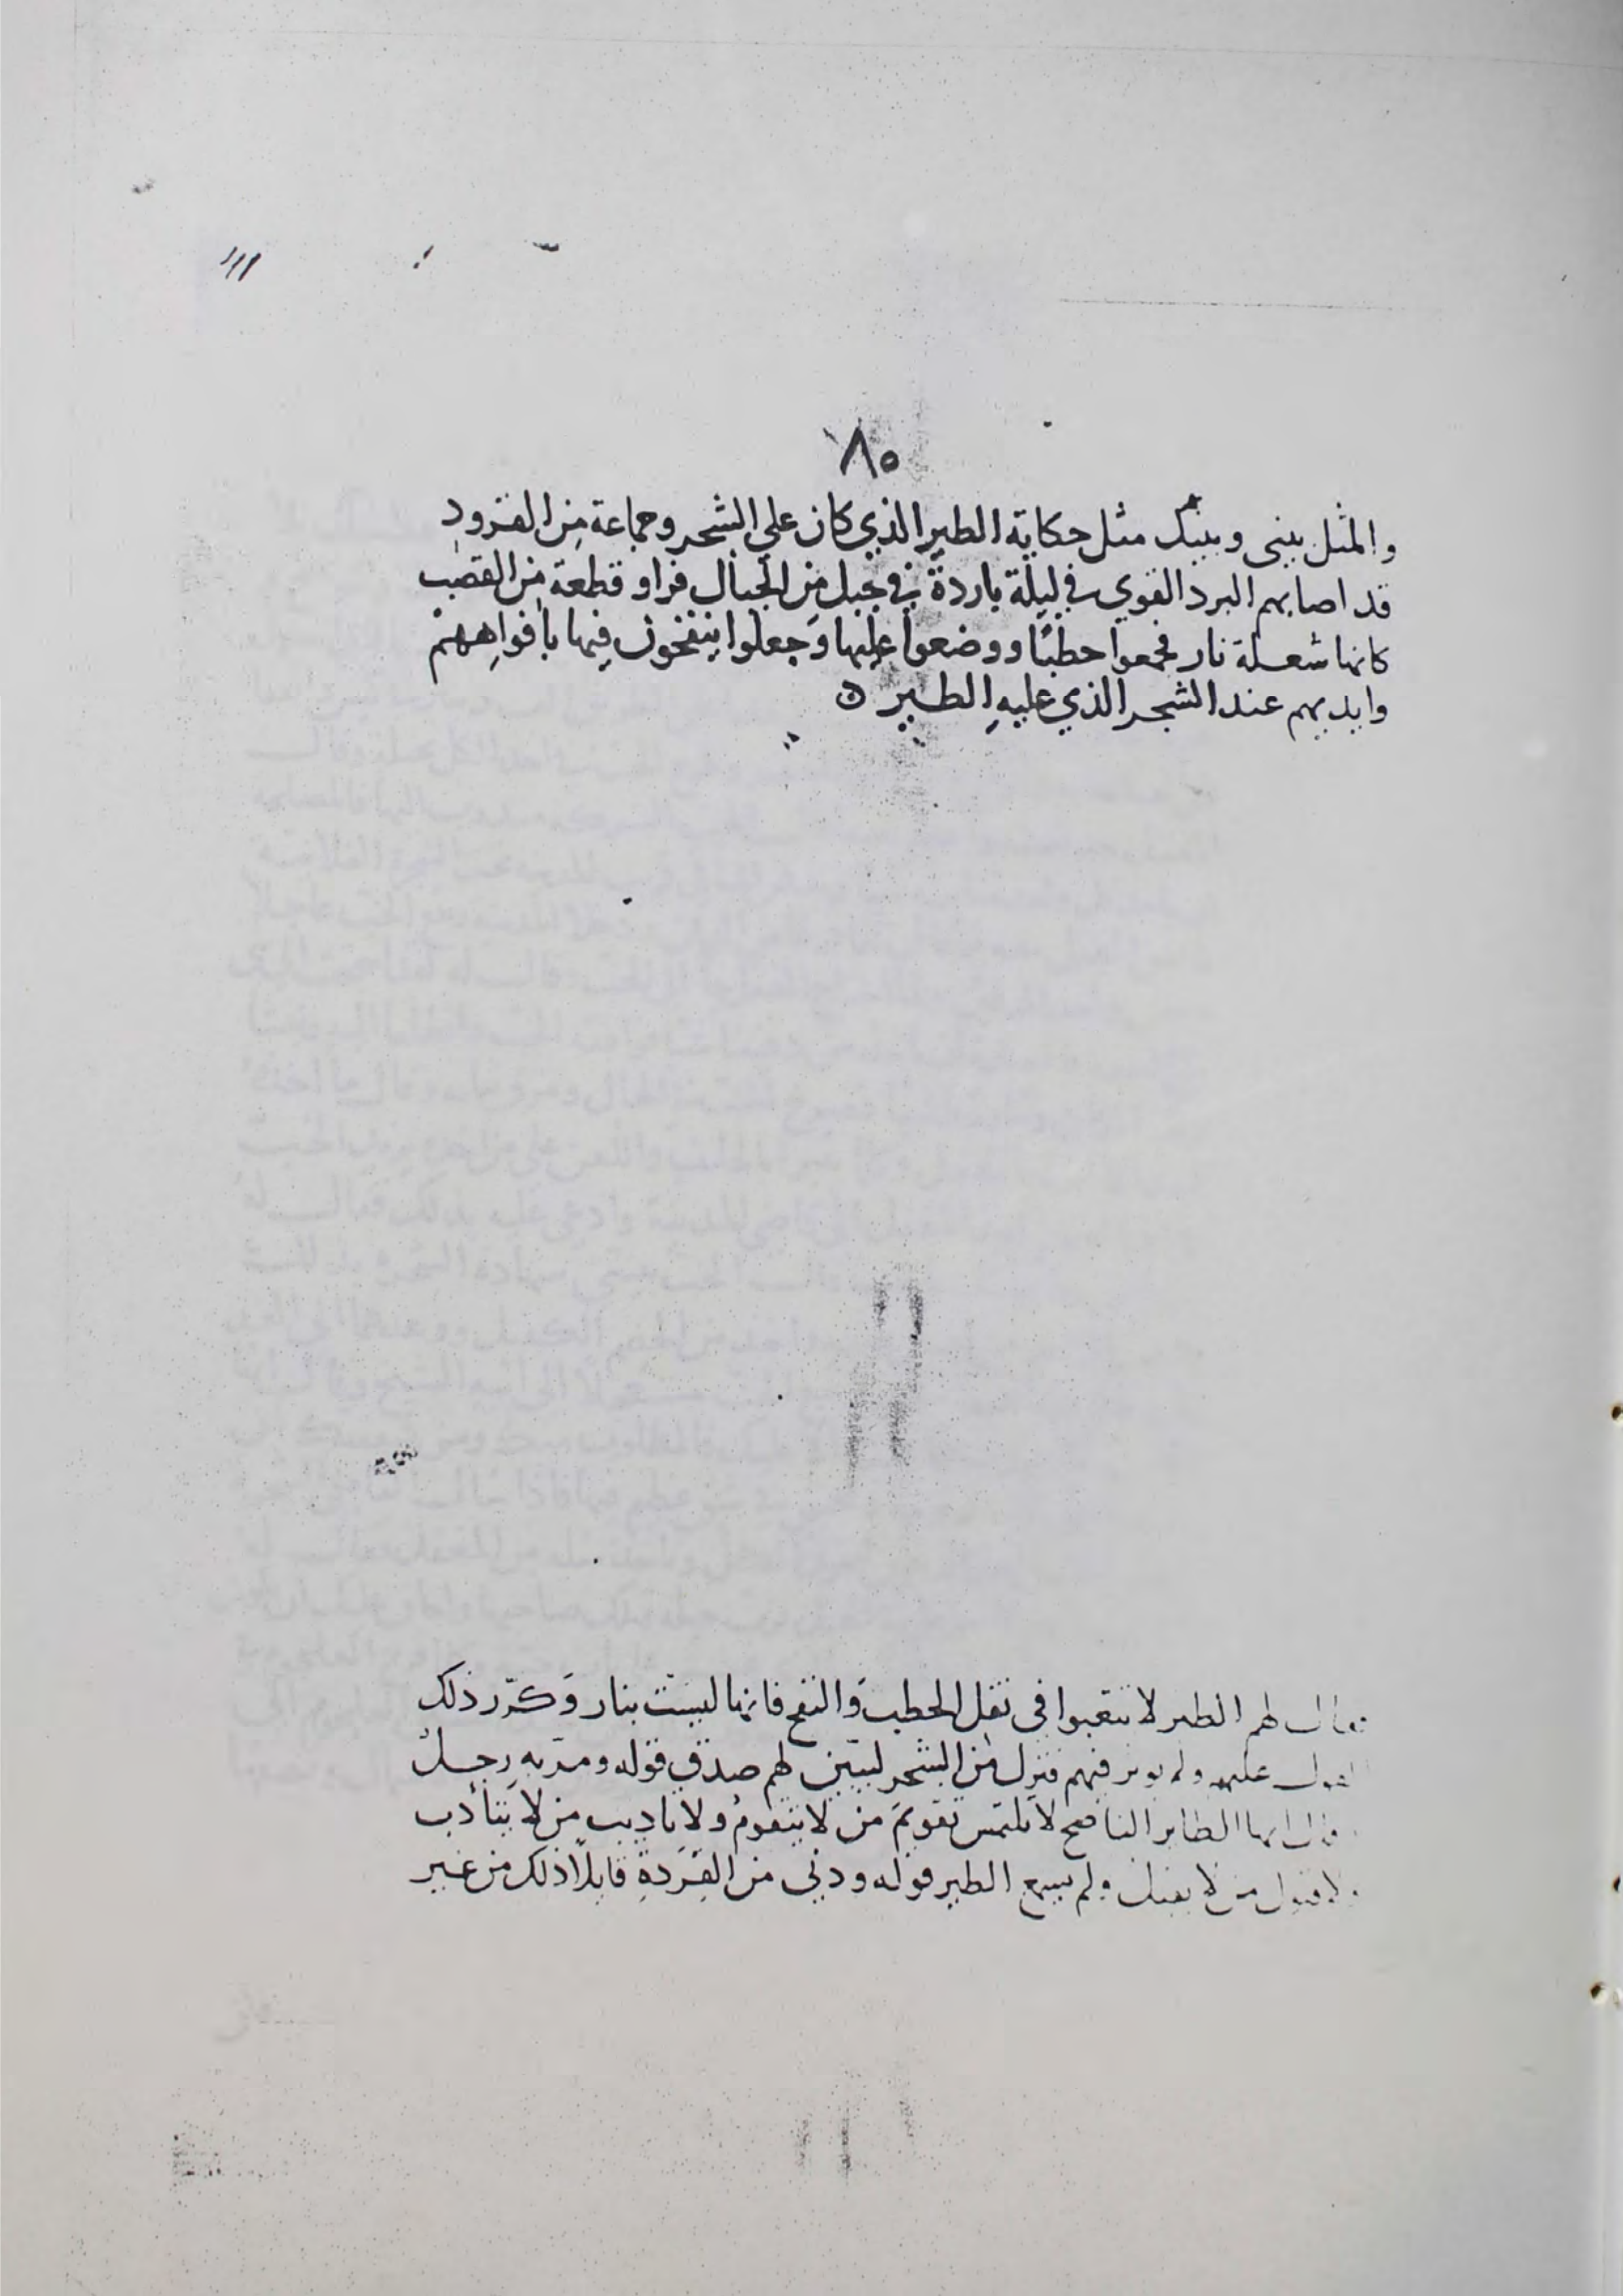 ٨٥
والمثل بيني وبينك مثل حكاية الطير الذي كان علي الشجر وجماعة من القرود
قد اصابهم البرد القوي في ليلة باردة في جبل من الجبال فراو قطعة من القصب
كانها شعلة نار فجمعوا حطبًا ووضعوا عليها وَجعلوا ينفخون فيها بافواههم
وايديهم عند الشجر الذي عليهِ الطير ن
فقال لهم الطير لا تتعبوا في نقل الحطب وَالنفخ فانها ليست بنار وَكرّر ذلك
القول عليهم ولم يوثر فيهم فنزل من الشجر ليبيّن لهم صدق قوله ومرّ بهِ رجلٌ
فقال ايها الطاير الناصح لا يلتمس تقويمَ من لا يتقومُ ولا تاديب من لا يتأدب
ولا قبول من لا يقبل ولم يسمع الطير قوله ودني من القِرَدةِ قايلًا ذلك من غير